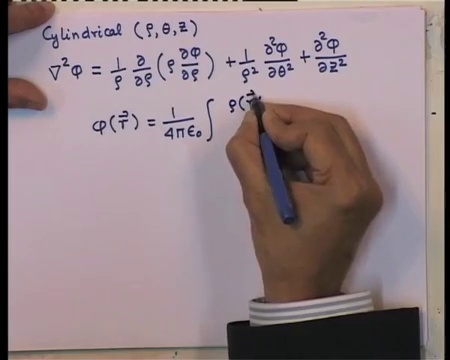 Cylindrical (ρ, θ, z)
∇²φ = 1/ρ ∂/∂ρ (ρ ∂φ/∂ρ) + 1/ρ² ∂²φ/∂θ² + ∂²φ/∂z²
φ(r⃗) = 1/4πε₀ ∫ ρ(r⃗